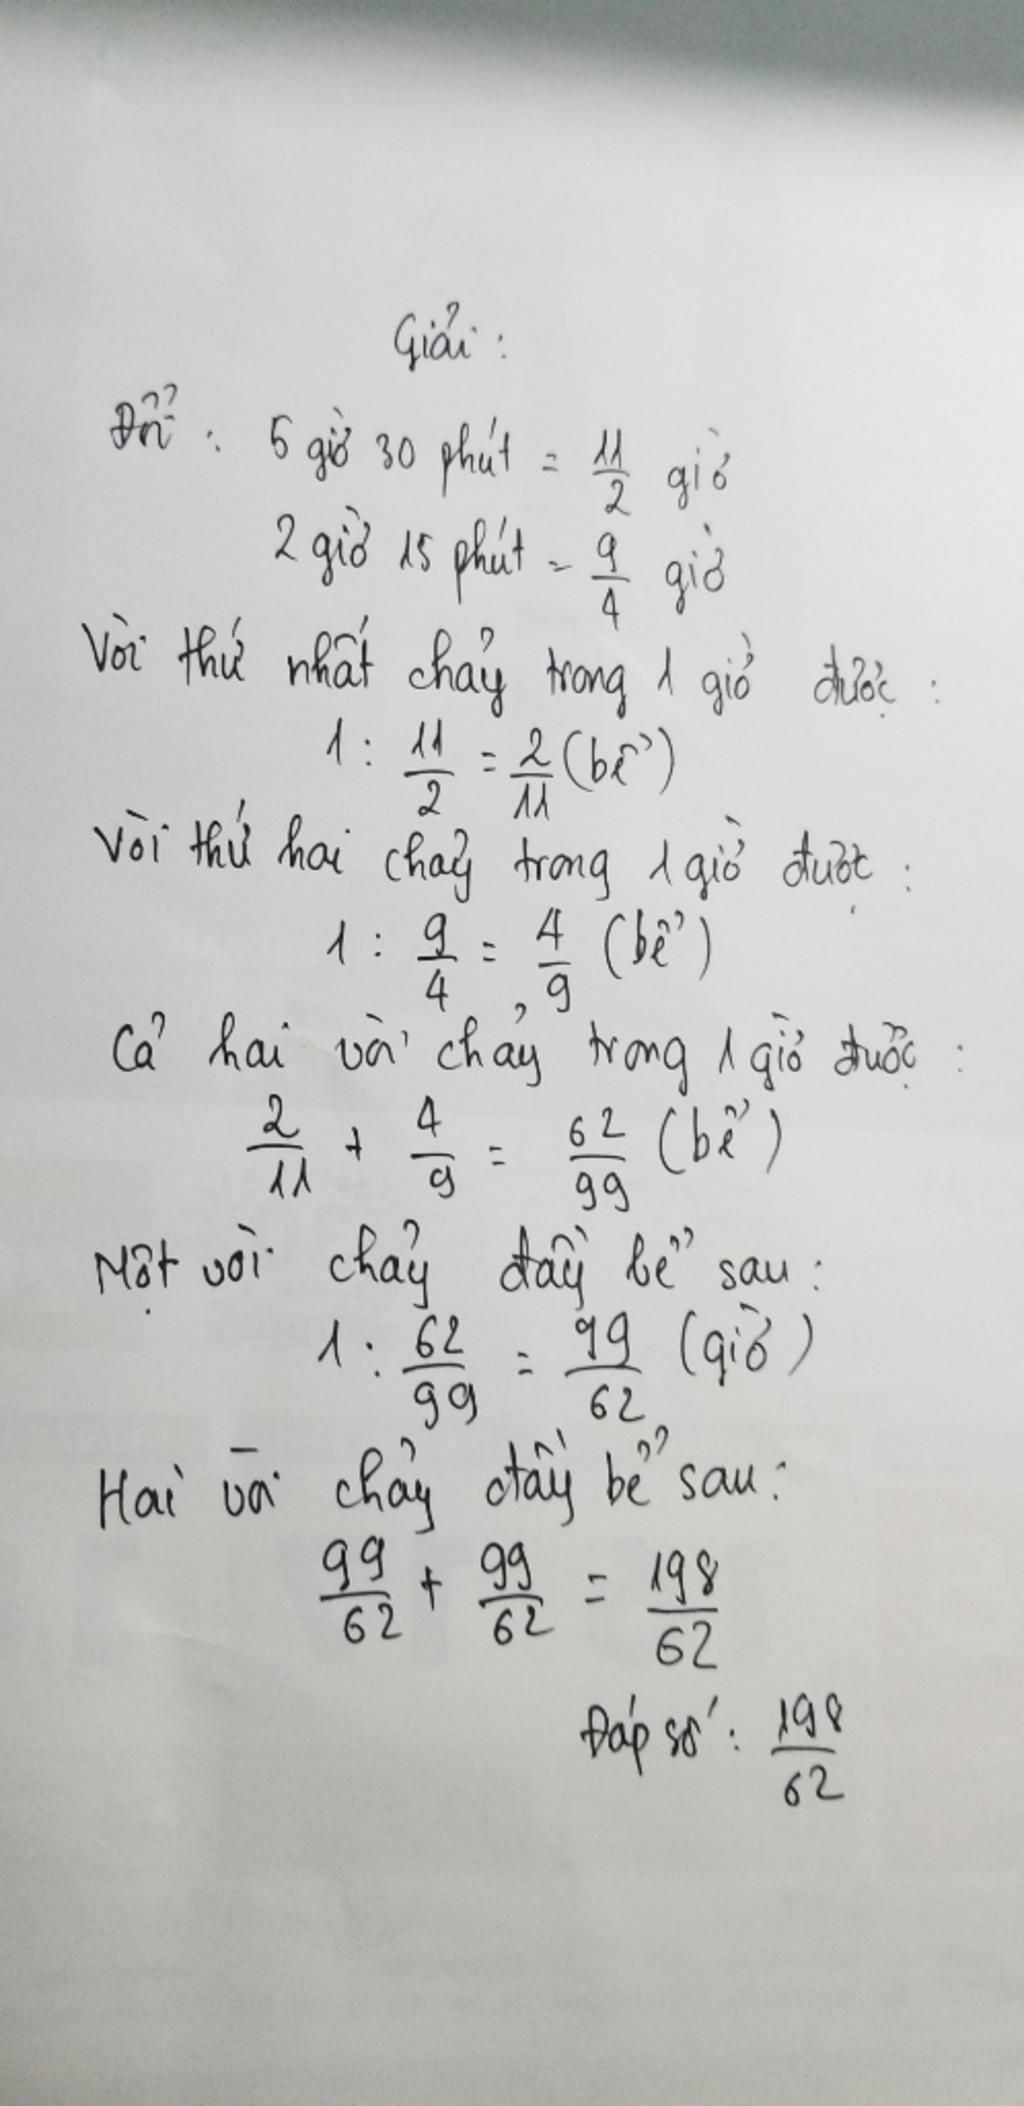 Giải :
Đổi : 5 giờ 30 phút = 11/2 giờ
2 giờ 15 phút = 9/4 giờ
Vòi thứ nhất chảy trong 1 giờ được :
1 : 11/2 = 2/11 (bể)
Vòi thứ hai chảy trong 1 giờ được :
1 : 9/4 = 4/9 (bể)
Cả hai vòi chảy trong 1 giờ được :
2/11 + 4/9 = 62/99 (bể)
Một vòi chảy đầy bể sau :
1 : 62/99 = 99/62 (giờ)
Hai vòi chảy đầy bể sau :
99/62 + 99/62 = 198/62
Đáp số : 198/62